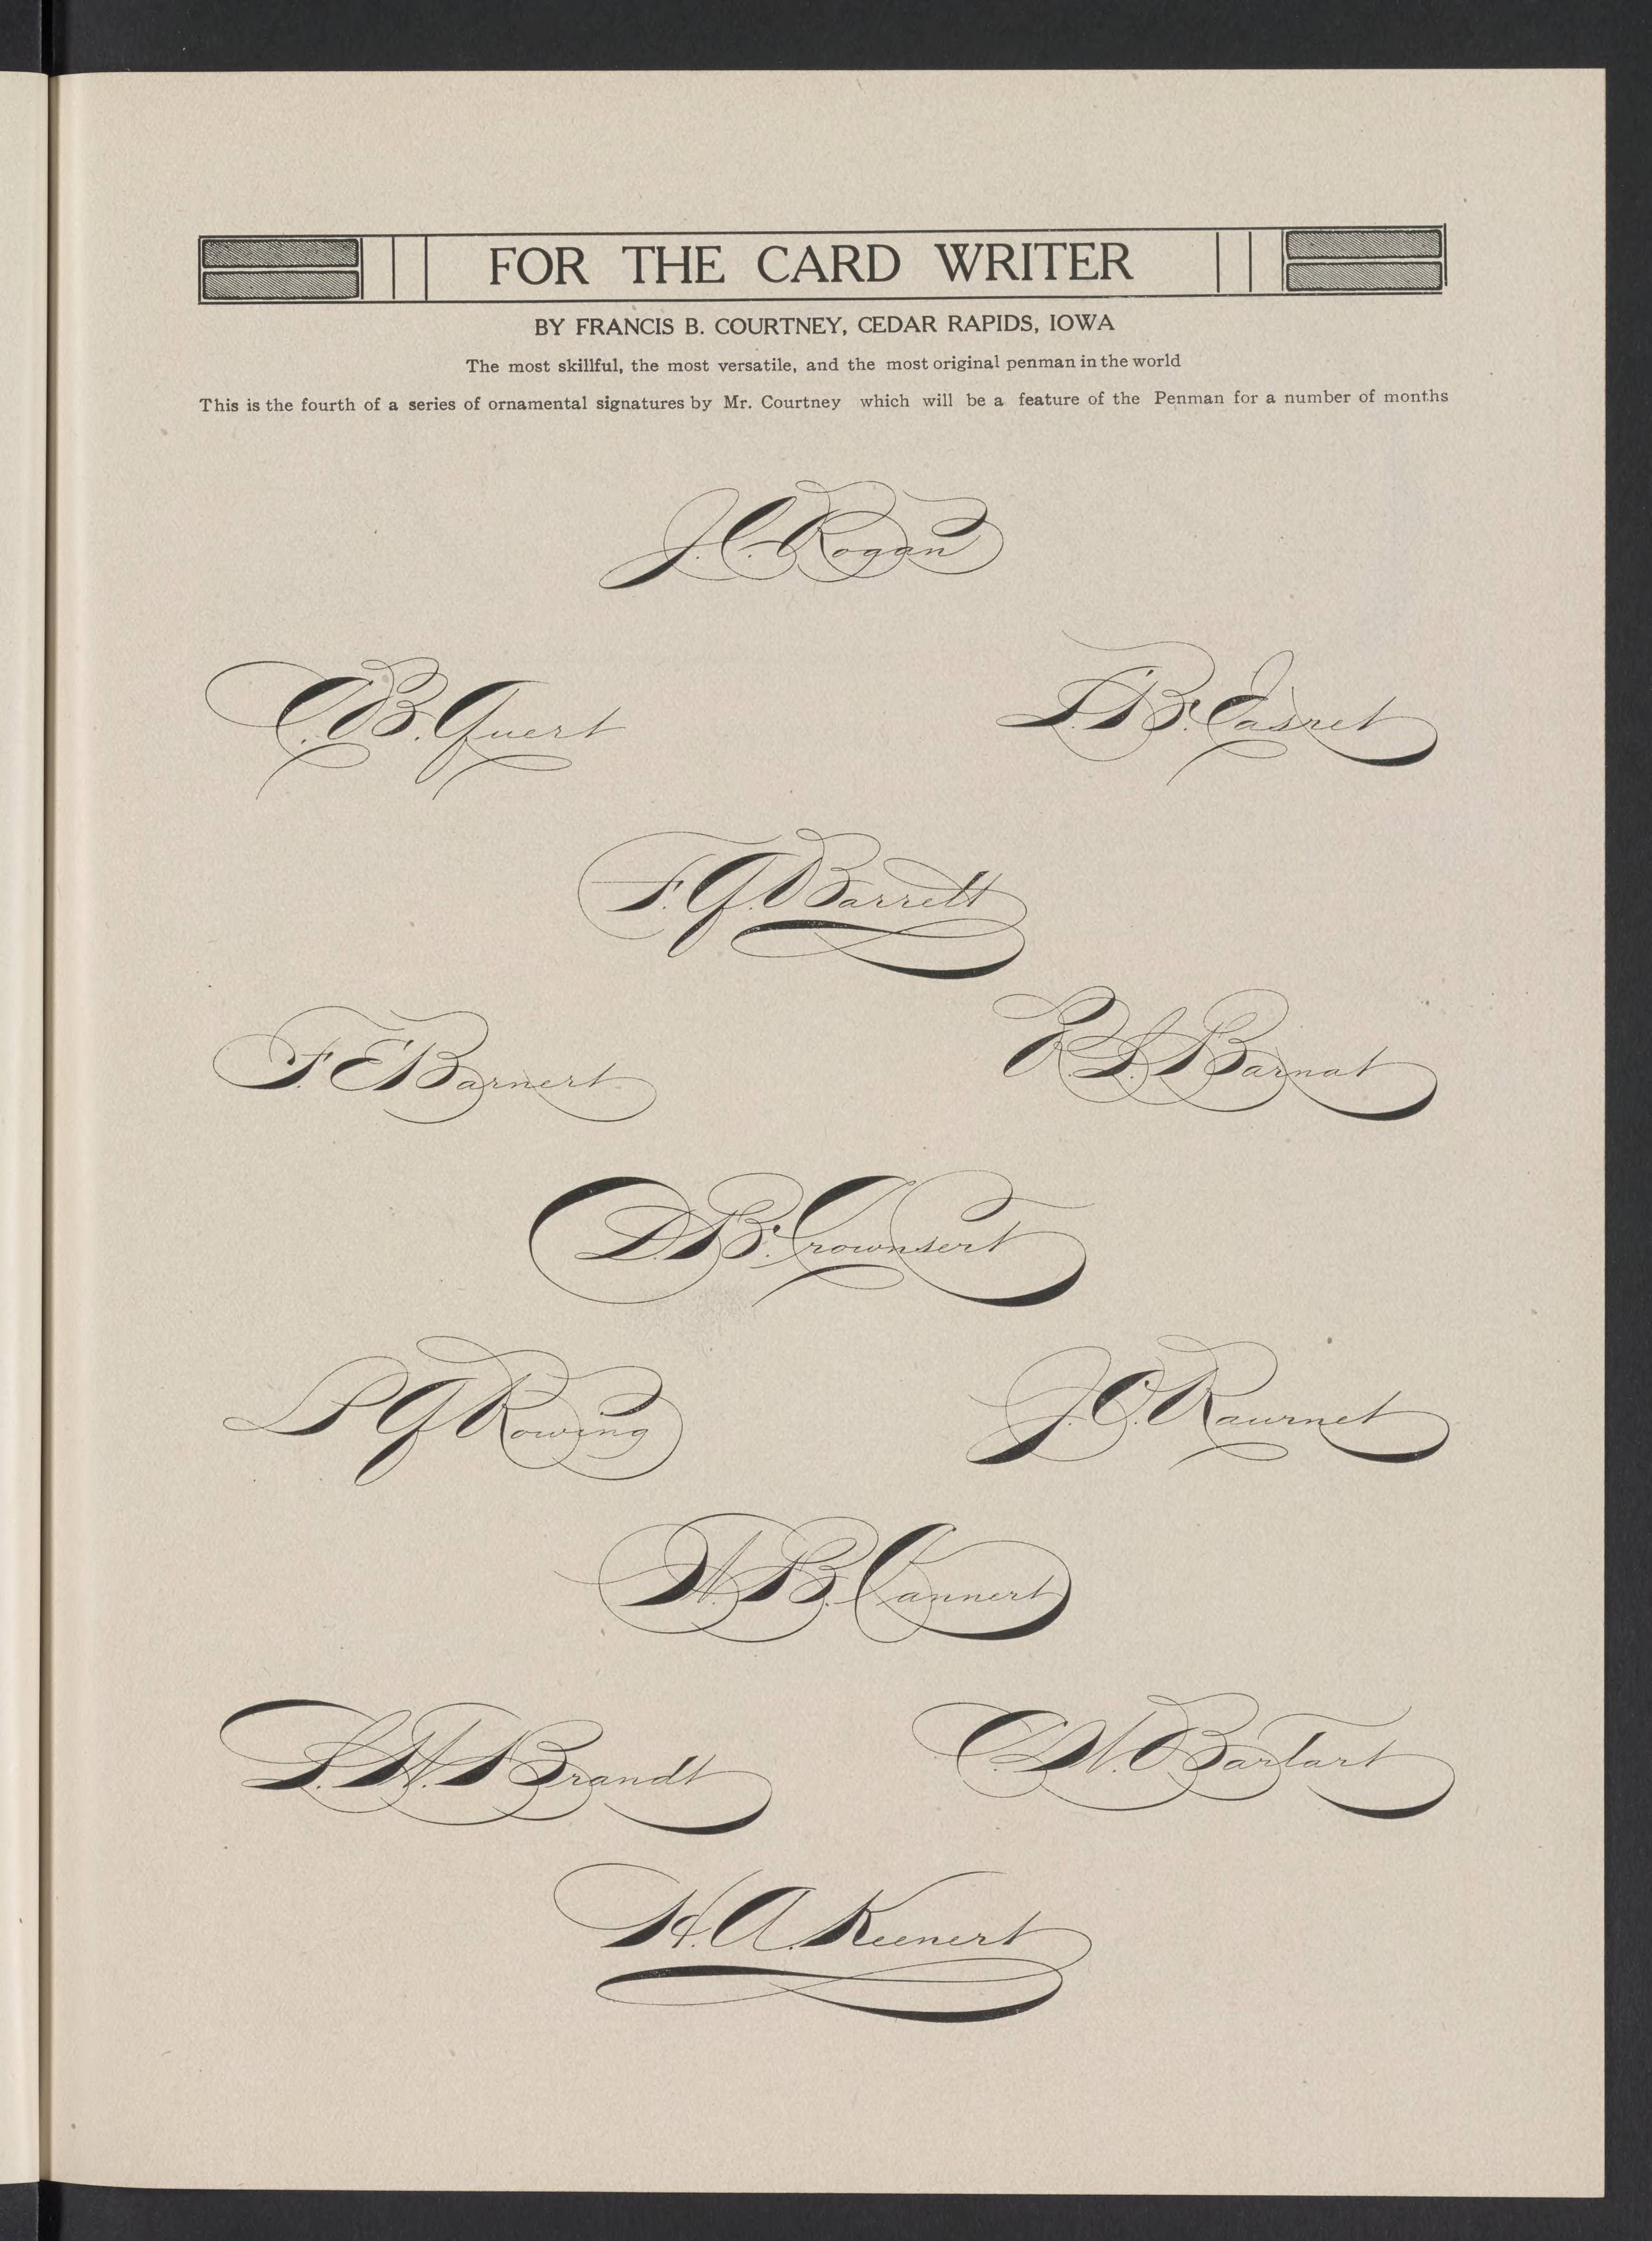 FOR THE CARD WRITER
BY FRANCIS B. COURTNEY, CEDAR RAPIDS, IOWA
The most skillful, the most versatile, and the most original penman in the world
This is the fourth of a series of ornamental signatures by Mr. Courtney which will be a feature of the Penman for a number of months
J. C. Rogan
C. B. Guert
S. B. Easret
F. G. Barrett
F. E. Barnert
Z. S. Barnat
D. B. Crownsert
P G Rowing
J. O. Raurnet
W. B. Cannert
S. W. Brandt
C. W. Bartart
H. A. Keenert